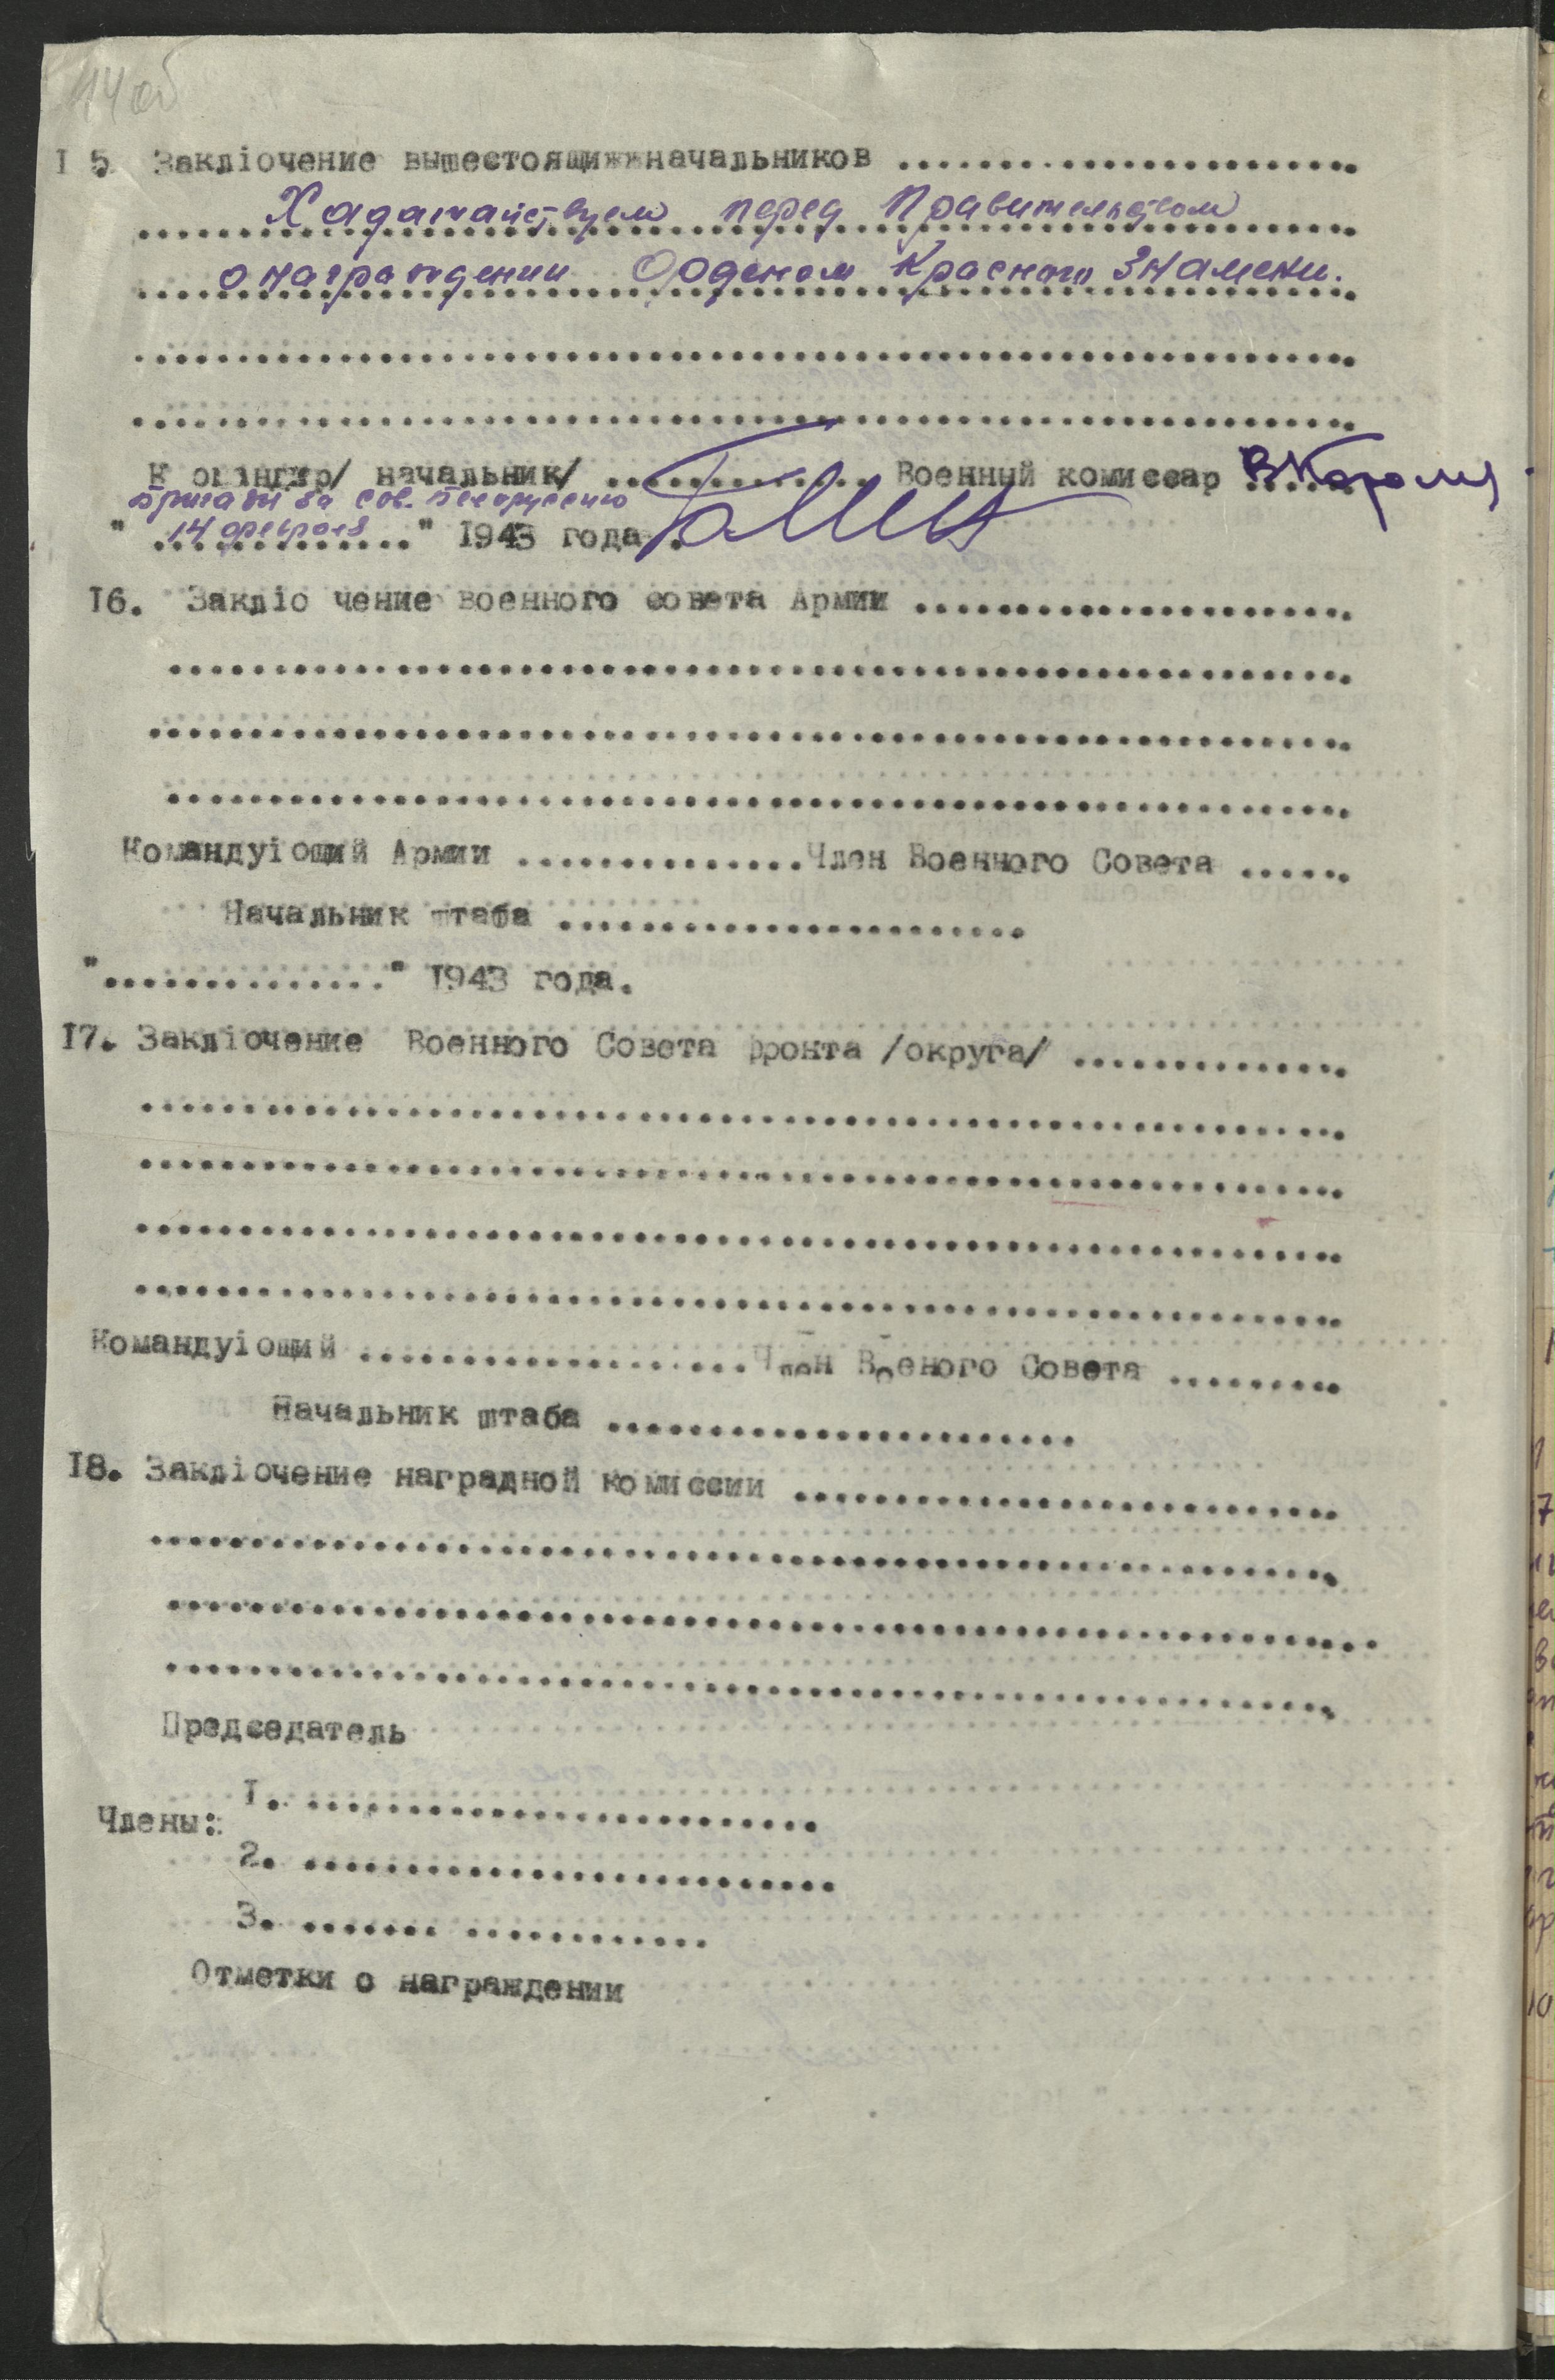 14 об
I 5. Закліочение вышестоящижжначальников ..........................
Хадатайствуем перед Правительством
о награждении Орденом Красного Знамени.
..........................................................
..........................................................
К омандир/ начальник/ ............. Военный комиссар ......
бригады за Сов. Белоруссию
" 14 февраля " 1943 года .
I6. Закліо чение военного совета Армии ......................
..........................................................
..........................................................
..........................................................
Командуіощий Армии ..............Член Военного Совета ......
Начальник штаба .......................
"..............." 1943 года.
I7. Закліочение Военного Совета фронта /округа/ ..............
..........................................................
..........................................................
..........................................................
..........................................................
Командуіощий ...................Член Военого Совета .........
Начальник штаба .......................
I8. Закліочение наградной комиссии ...........................
..........................................................
............................................................
..........................................................
Председатель
Члены:
I. .........................
2. ..........................
3. ....... ............
Отметки о награждении